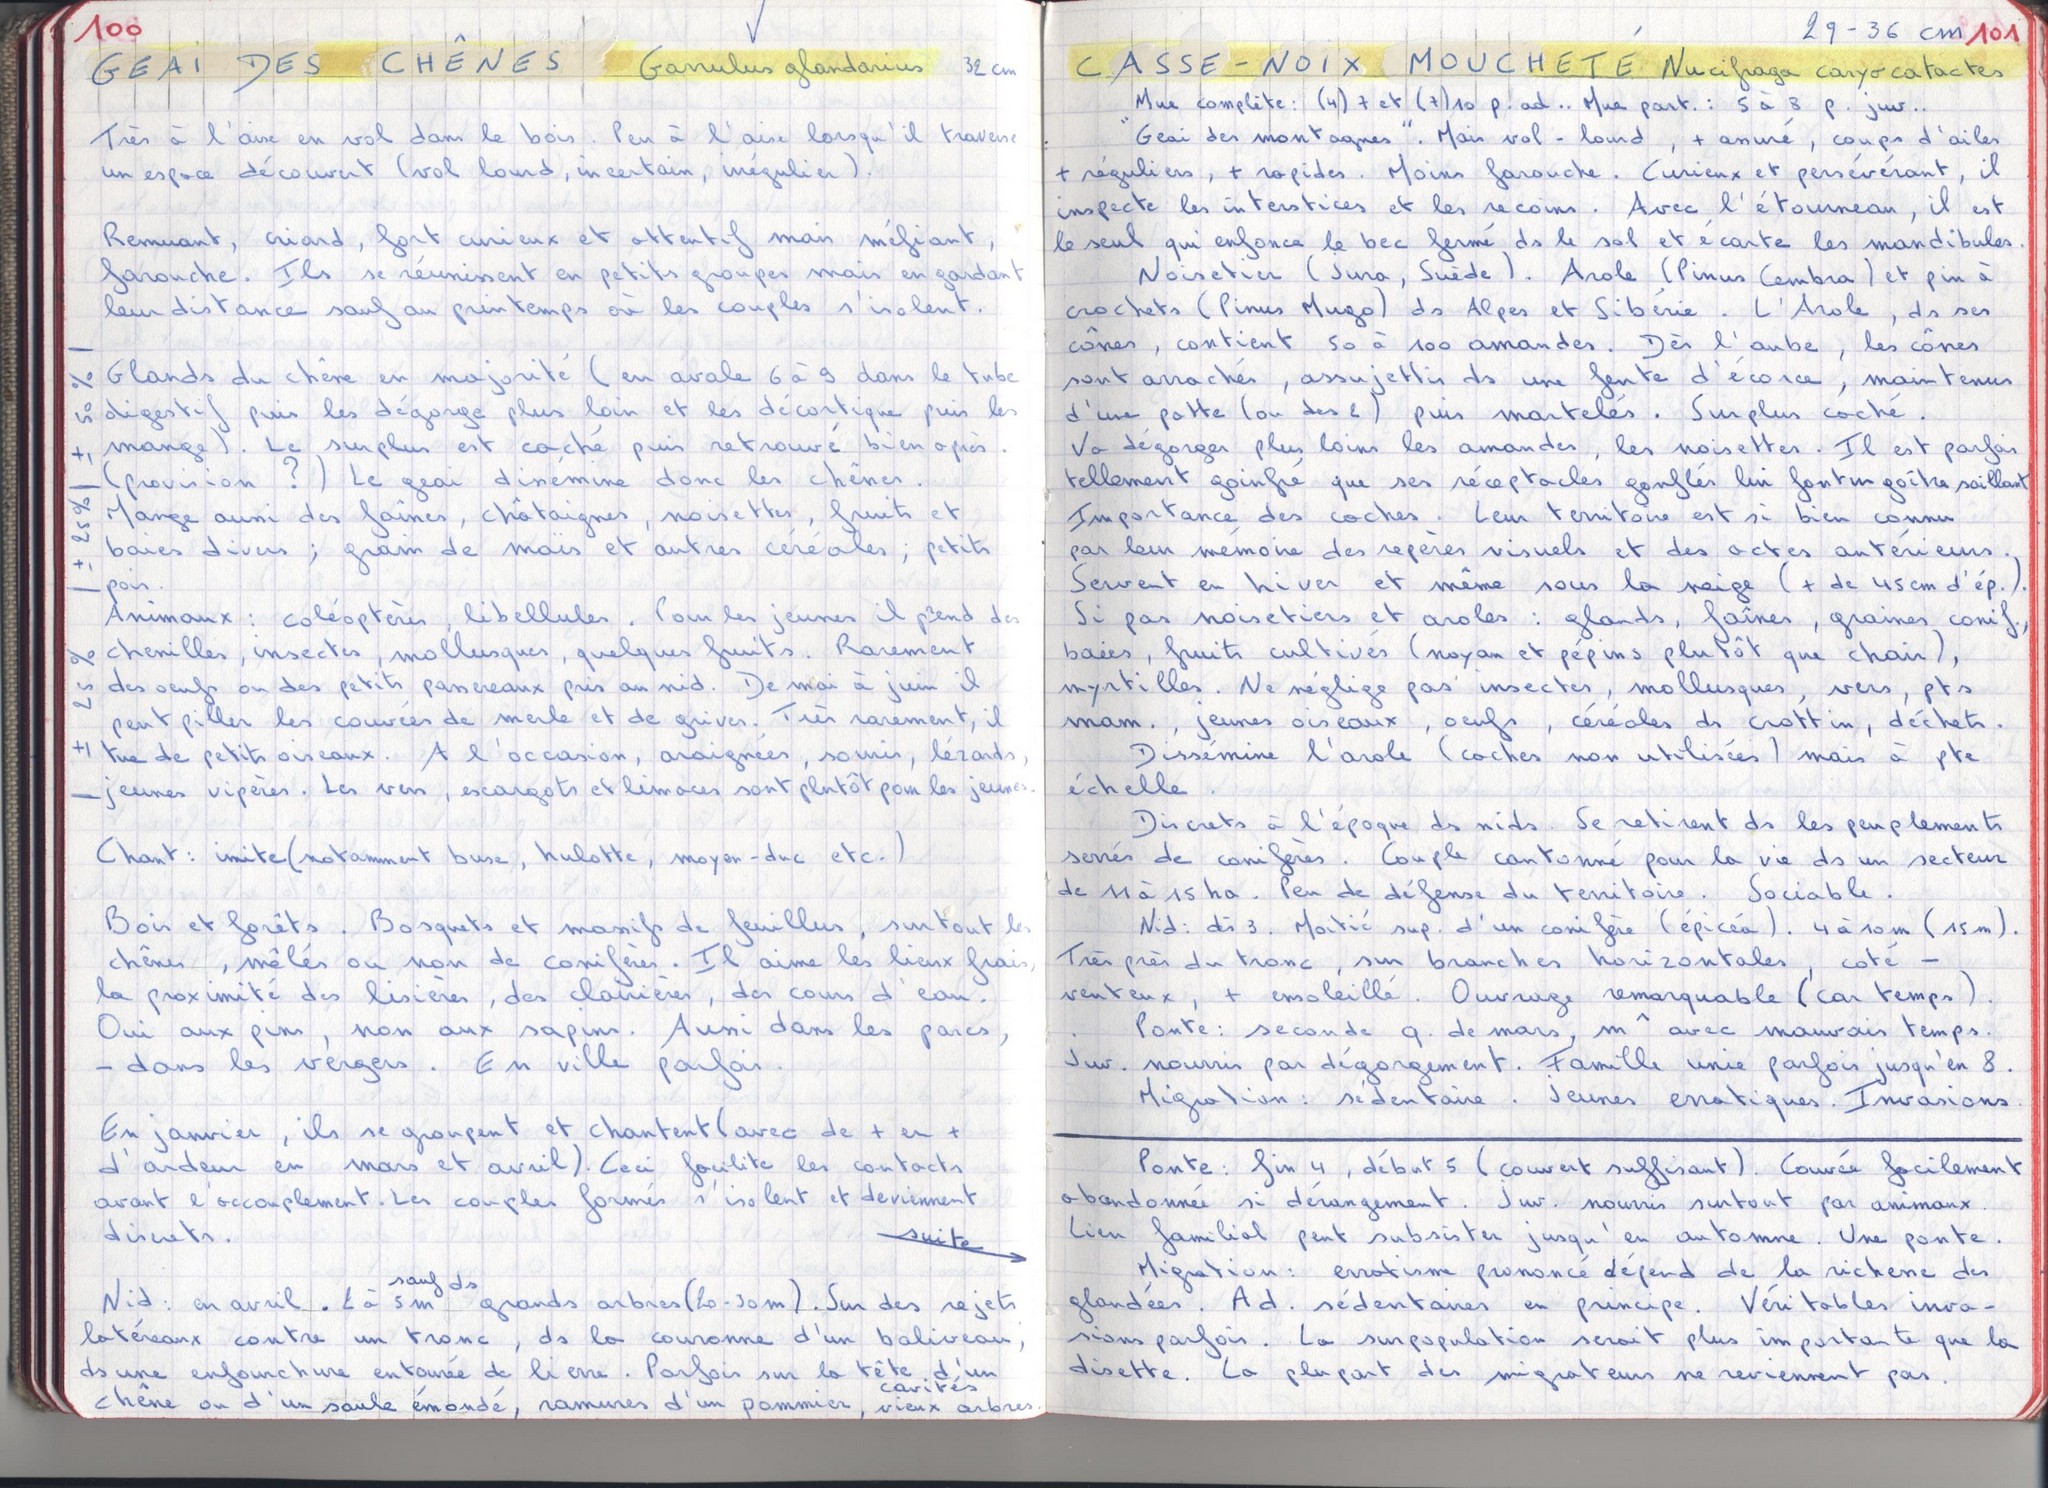 100
GEAI DES CHÊNES Garrulus glandarius 32 cm
Très à l'aise en vol dans le bois. Peu à l'aise lorsqu'il traverse
un espace découvert (vol lourd, incertain, irrégulier).
Remuant, criard, fort curieux et attentif mais méfiant,
farouche. Ils se réunissent en petits groupes mais en gardant
leur distance sauf au printemps où les couples s'isolent.
Glands du chêne en majorité (en avale 6 à 9 dans le tube
digestif puis les dégorge plus loin et les décortique puis les
mange). Le surplus est caché puis retrouvé bien après.
(provision ?) Le geai dissémine donc les chênes.
Mange aussi des faînes, châtaignes, noisettes, fruits et
baies divers ; grain de maïs et autres céréales ; petits
pois.
± 50 %
± 25 %
Animaux : coléoptères, libellules. Pour les jeunes il prend des
chenilles, insectes, mollusques, quelques fruits. Rarement
des oeufs ou des petits passereaux pris au nid. De mai à juin il
peut piller les couvées de merle et de grives. Très rarement, il
tue de petits oiseaux. A l'occasion, araignées, souris, lézards,
jeunes vipères. Les vers, escargots et limaces sont plutôt pour les jeunes.
± 25 %
Chant : imite (notamment buse, hulotte, moyen-duc etc.)
Bois et forêts. Bosquets et massifs de feuillus, surtout les
chênes, mêlés ou non de conifères. Il aime les lieux frais,
la proximité des lisières, des clairières, des cours d'eau.
Oui aux pins, non aux sapins. Aussi dans les parcs,
- dans les vergers. En ville parfois.
En janvier, ils se groupent et chantent (avec de + en +
d'ardeur en mars et avril). Ceci facilite les contacts
avant l'accouplement. Les couples formés s'isolent et deviennent
discrets.
suite →
Nid : en avril. 2 à 5m sauf ds grands arbres (20-30m). Sur des rejets
latéraux contre un tronc, ds la couronne d'un baliveau,
ds une enfourchure entourée de lierre. Parfois sur la tête d'un
chêne ou d'un saule émondé, ramures d'un pommier, cavités vieux arbres.
29-36 cm 101
CASSE-NOIX MOUCHETÉ Nucifraga caryocatactes
Mue complète : (4) 7 et (7) 10 p. ad.. Mue part. : 5 à 8 p. juv..
"Geai des montagnes". Mais vol - lourd, + assuré, coups d'ailes
+ réguliers, + rapides. Moins farouche. Curieux et persévérant, il
inspecte les interstices et les recoins. Avec l'étourneau, il est
le seul qui enfonce le bec fermé ds le sol et écarte les mandibules.
Noisetier (Jura, Suède). Arole (Pinus Cembra) et pin à
crochets (Pinus Mugo) ds Alpes et Sibérie. L'Arole, ds ses
cônes, contient 50 à 100 amandes. Dès l'aube, les cônes
sont arrachés, assujettis ds une fente d'écorce, maintenus
d'une patte (ou des 2) puis martelés. Surplus caché.
Va dégorger plus loins les amandes, les noisettes. Il est parfois
tellement goinfré que ses réceptacles gonflés lui font un goître saillant
Importance des caches. Leur territoire est si bien connu
par leur mémoire des repères visuels et des actes antérieurs.
Servent en hiver et même sous la neige (+ de 45cm d'ép.).
Si pas noisetiers et aroles : glands, faînes, graines conif.,
baies, fruits cultivés (noyau et pépins plutôt que chair),
myrtilles. Ne néglige pas insectes, mollusques, vers, pts
mam., jeunes oiseaux, oeufs, céréales ds crottin, déchets.
Dissémine l'arole (caches non utilisées) mais à pte
échelle.
Discrets à l'époque ds nids. Se retirent ds les peuplements
serrés de conifères. Couple cantonné pour la vie ds un secteur
de 11 à 15 ha. Peu de défense du territoire. Sociable.
Nid : dès 3. Moitié sup. d'un conifère (épicéa). 4 à 10m (15m).
Très près du tronc, sur branches horizontales, coté -
venteux, + ensoleillé. Ouvrage remarquable (car temps).
Ponte : seconde q. de mars, m^ avec mauvais temps.
Juv. nourris par dégorgement. Famille unie parfois jusqu'en 8.
Migration : sédentaire. Jeunes erratiques. Invasions.
Ponte : fin 4, début 5 (couvert suffisant). Couvée facilement
abandonnée si dérangement. Juv. nourris surtout par animaux.
Lien familial peut subsister jusqu'en automne. Une ponte.
Migration : erratisme prononcé dépend de la richesse des
glandées. Ad. sédentaires en principe. Véritables inva-
sions parfois. La surpopulation serait plus importante que la
disette. La plupart des migrateurs ne reviennent pas.